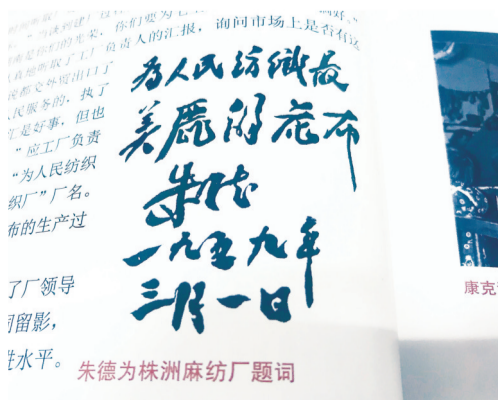 时听取了工厂负责人的汇报，询问市场上是否有这
民服务的，执了
汇是好事，但也
”应工厂负责
“为人民纺织
织厂”厂名。
布的生产过
了厂领导
同留影，
进水平。
为人民纺织最
美丽的花布
朱德
一九五九年
三月一日
朱德为株洲麻纺厂题词
康克